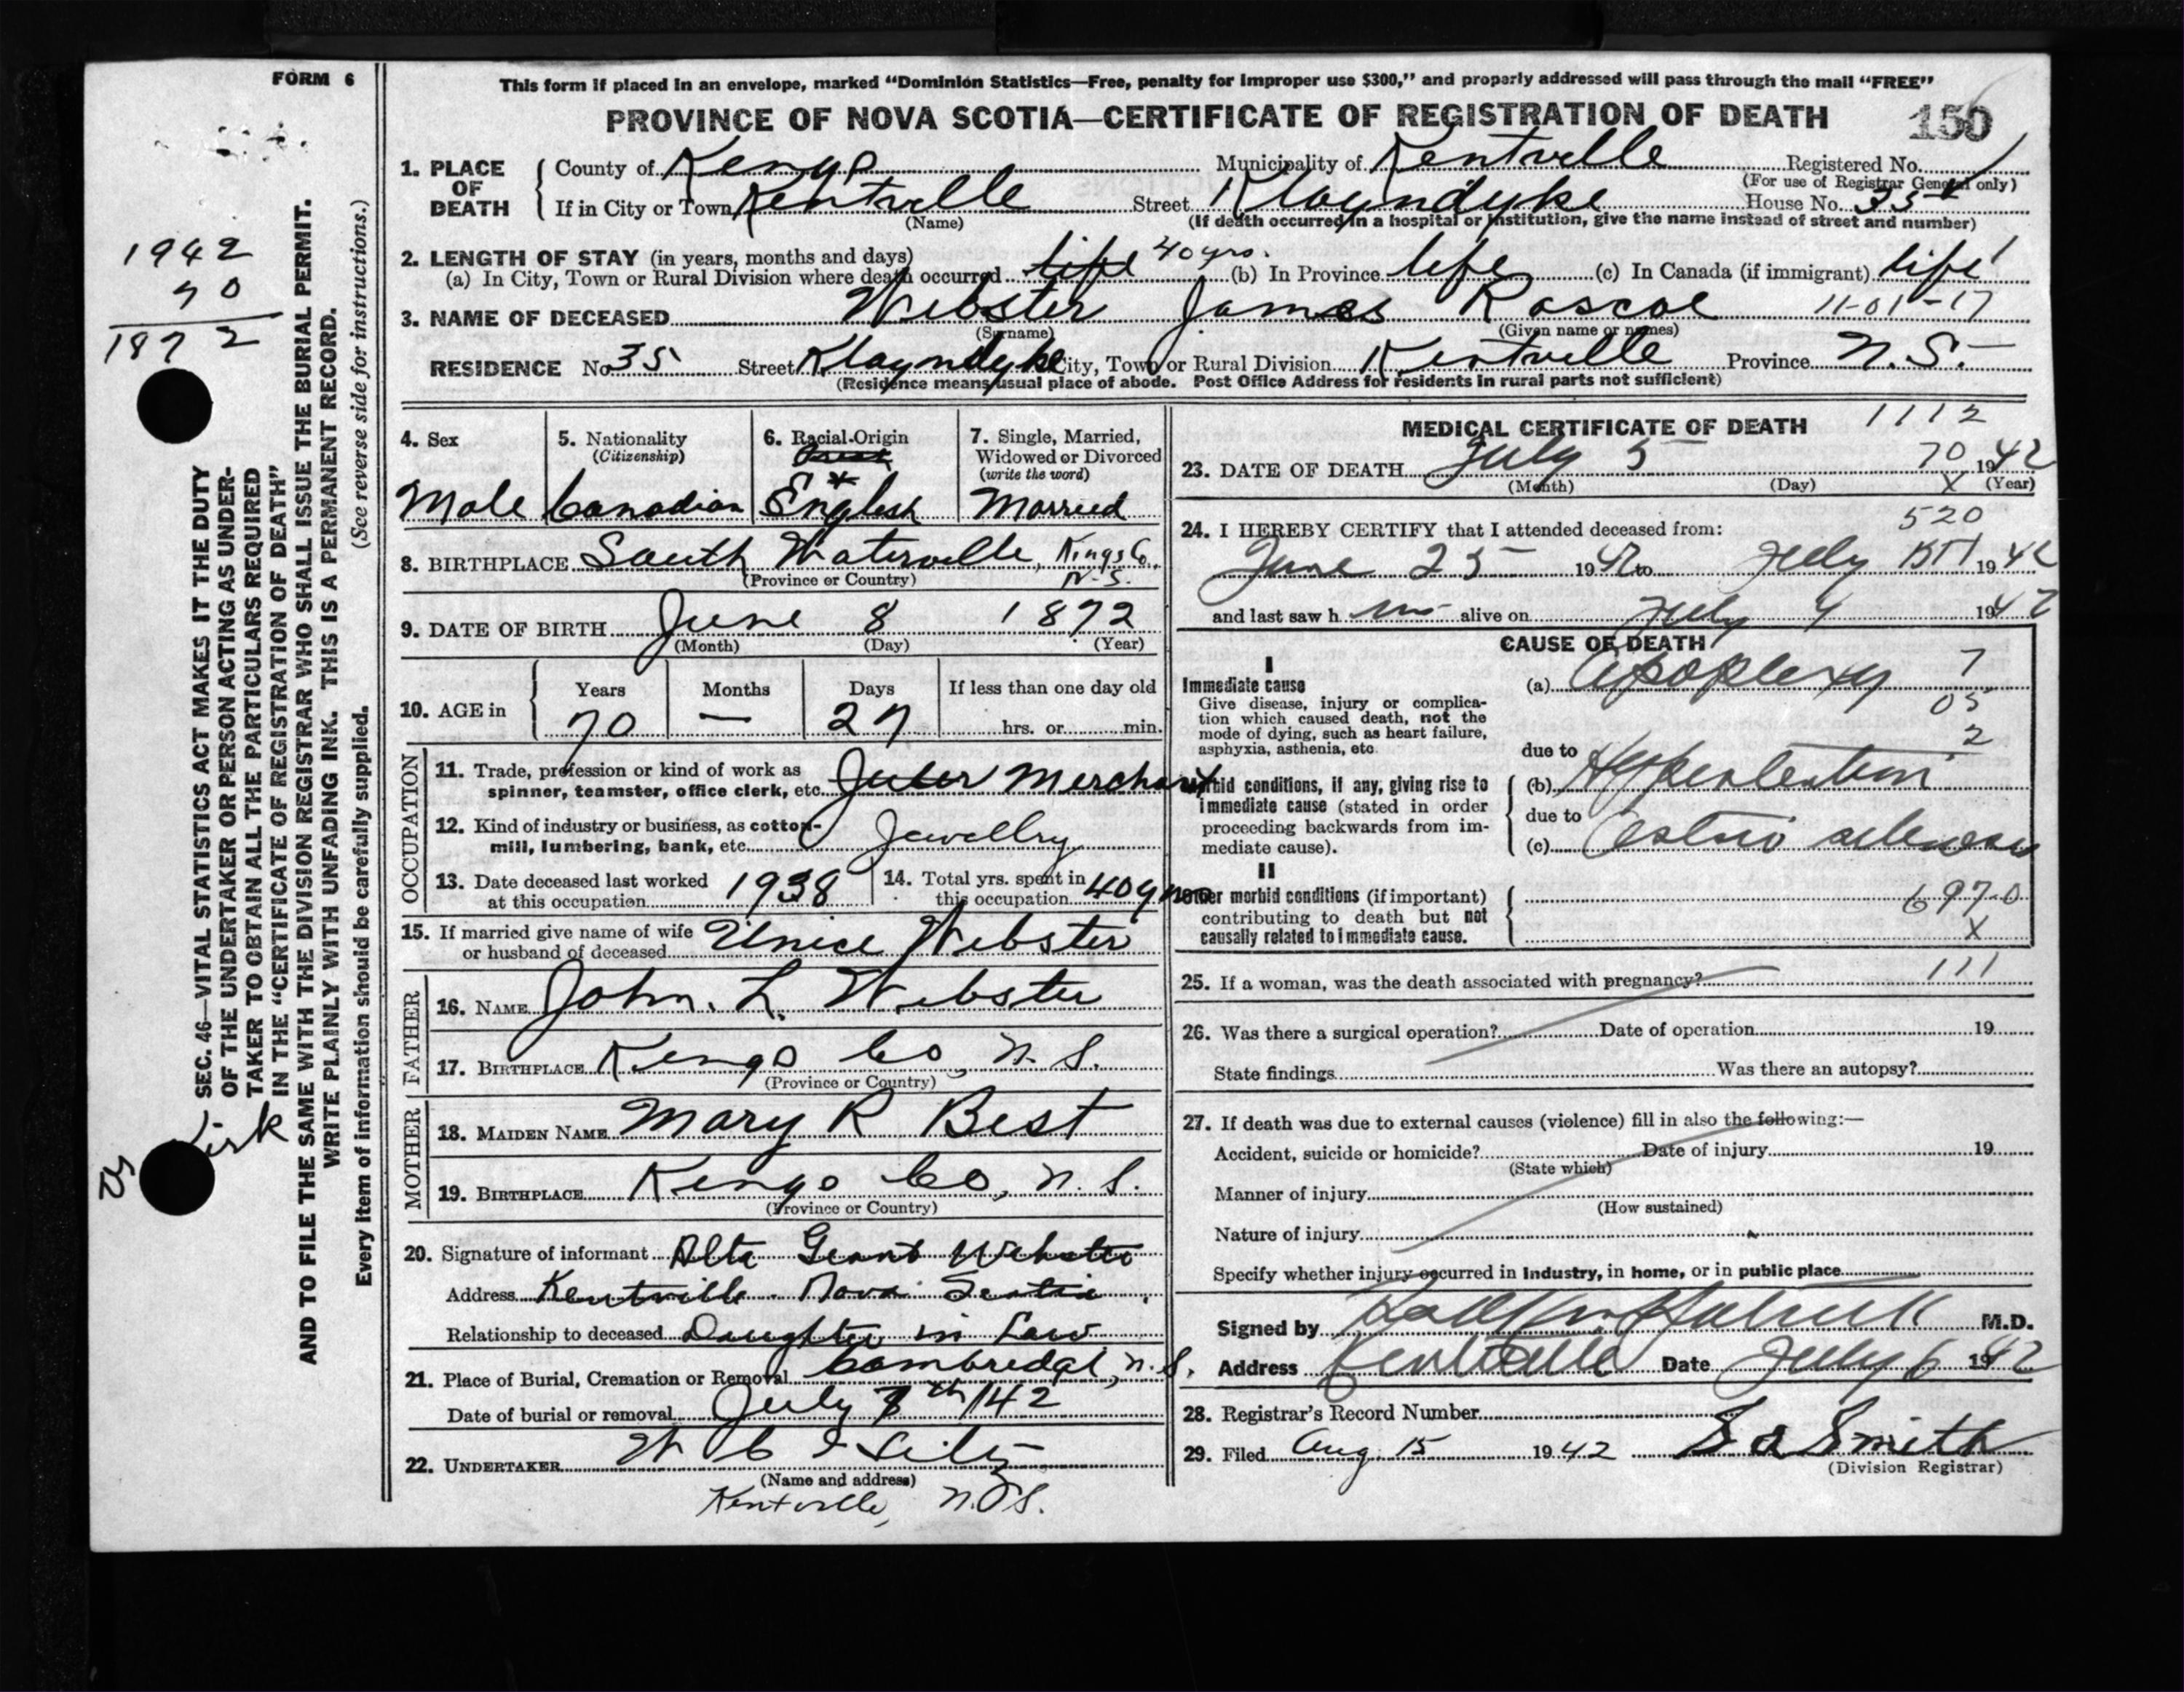 FORM 6
This form if placed in an envelope, marked “Dominion Statistics—Free, penalty for improper use $300,” and properly addressed will pass through the mail “FREE”
PROVINCE OF NOVA SCOTIA—CERTIFICATE OF REGISTRATION OF DEATH
150
1. PLACE OF DEATH County of Kings Municipality of Kentville Registered No.
(For use of Registrar General only)
If in City or Town Kentville Street Klayndyke House No. 35
(Name) (If death occurred in a hospital or institution, give the name instead of street and number)
2. LENGTH OF STAY (in years, months and days)
(a) In City, Town or Rural Division where death occurred life 40 yrs. (b) In Province life (c) In Canada (if immigrant) life
3. NAME OF DECEASED Webster James Roscoe 11-01-17
(Surname) (Given name or names)
RESIDENCE No 35 Street Klayndyke City, Town or Rural Division Kentville Province N.S.
(Residence means usual place of abode. Post Office Address for residents in rural parts not sufficient)
4. Sex
Male
5. Nationality
(Citizenship)
Canadian
6. Racial-Origin
*
English
7. Single, Married,
Widowed or Divorced
(write the word)
Married
8. BIRTHPLACE South Waterville, Kings Co.,
(Province or Country) N.S.
9. DATE OF BIRTH June 8 1872
(Month) (Day) (Year)
10. AGE in Years Months Days If less than one day old
70 — 27 hrs. or min.
OCCUPATION
11. Trade, profession or kind of work as
spinner, teamster, office clerk, etc. Merchant
12. Kind of industry or business, as cotton-
mill, lumbering, bank, etc. Jewellry
13. Date deceased last worked
at this occupation 1938
14. Total yrs. spent in
this occupation 40 yrs
15. If married give name of wife
or husband of deceased Unice Webster
FATHER
16. NAME John. L. Webster
17. BIRTHPLACE Kings Co, N.S.
(Province or Country)
MOTHER
18. MAIDEN NAME Mary R Best
19. BIRTHPLACE Kings Co, N.S.
(Province or Country)
20. Signature of informant Alta Grant Webster
Address Kentville Nova Scotia
Relationship to deceased Daughter in Law
21. Place of Burial, Cremation or Removal Cambredge, N.S.
Date of burial or removal July 7th/42
22. UNDERTAKER W C
(Name and address)
Kentville, N.S.
MEDICAL CERTIFICATE OF DEATH 1112
23. DATE OF DEATH July 5 70 1942
(Month) (Day) X (Year)
24. I HEREBY CERTIFY that I attended deceased from: 520
June 25 1942 to July 1942
and last saw h im alive on July 4 1942
CAUSE OF DEATH
I
Immediate cause
Give disease, injury or complica-
tion which caused death, not the
mode of dying, such as heart failure,
asphyxia, asthenia, etc
(a) Apoplexy 7
05
2
due to
Morbid conditions, if any, giving rise to
immediate cause (stated in order
proceeding backwards from im-
mediate cause).
(b) Hypertention
due to
(c)
II
Other morbid conditions (if important)
contributing to death but not
causally related to immediate cause.
697-0
X
25. If a woman, was the death associated with pregnancy? 111
26. Was there a surgical operation? Date of operation 19
State findings Was there an autopsy?
27. If death was due to external causes (violence) fill in also the following:—
Accident, suicide or homicide? Date of injury 19
(State which)
Manner of injury
(How sustained)
Nature of injury
Specify whether injury occurred in industry, in home, or in public place
Signed by M.D.
Address Kentville Date July 6 1942
28. Registrar’s Record Number
29. Filed Aug. 15 1942 Smith
(Division Registrar)
1942
70
1872
SEC. 46—VITAL STATISTICS ACT MAKES IT THE DUTY
OF THE UNDERTAKER OR PERSON ACTING AS UNDER-
TAKER TO OBTAIN ALL THE PARTICULARS REQUIRED
IN THE “CERTIFICATE OF REGISTRATION OF DEATH”
AND TO FILE THE SAME WITH THE DIVISION REGISTRAR WHO SHALL ISSUE THE BURIAL PERMIT.
WRITE PLAINLY WITH UNFADING INK. THIS IS A PERMANENT RECORD.
Every item of information should be carefully supplied. (See reverse side for instructions.)